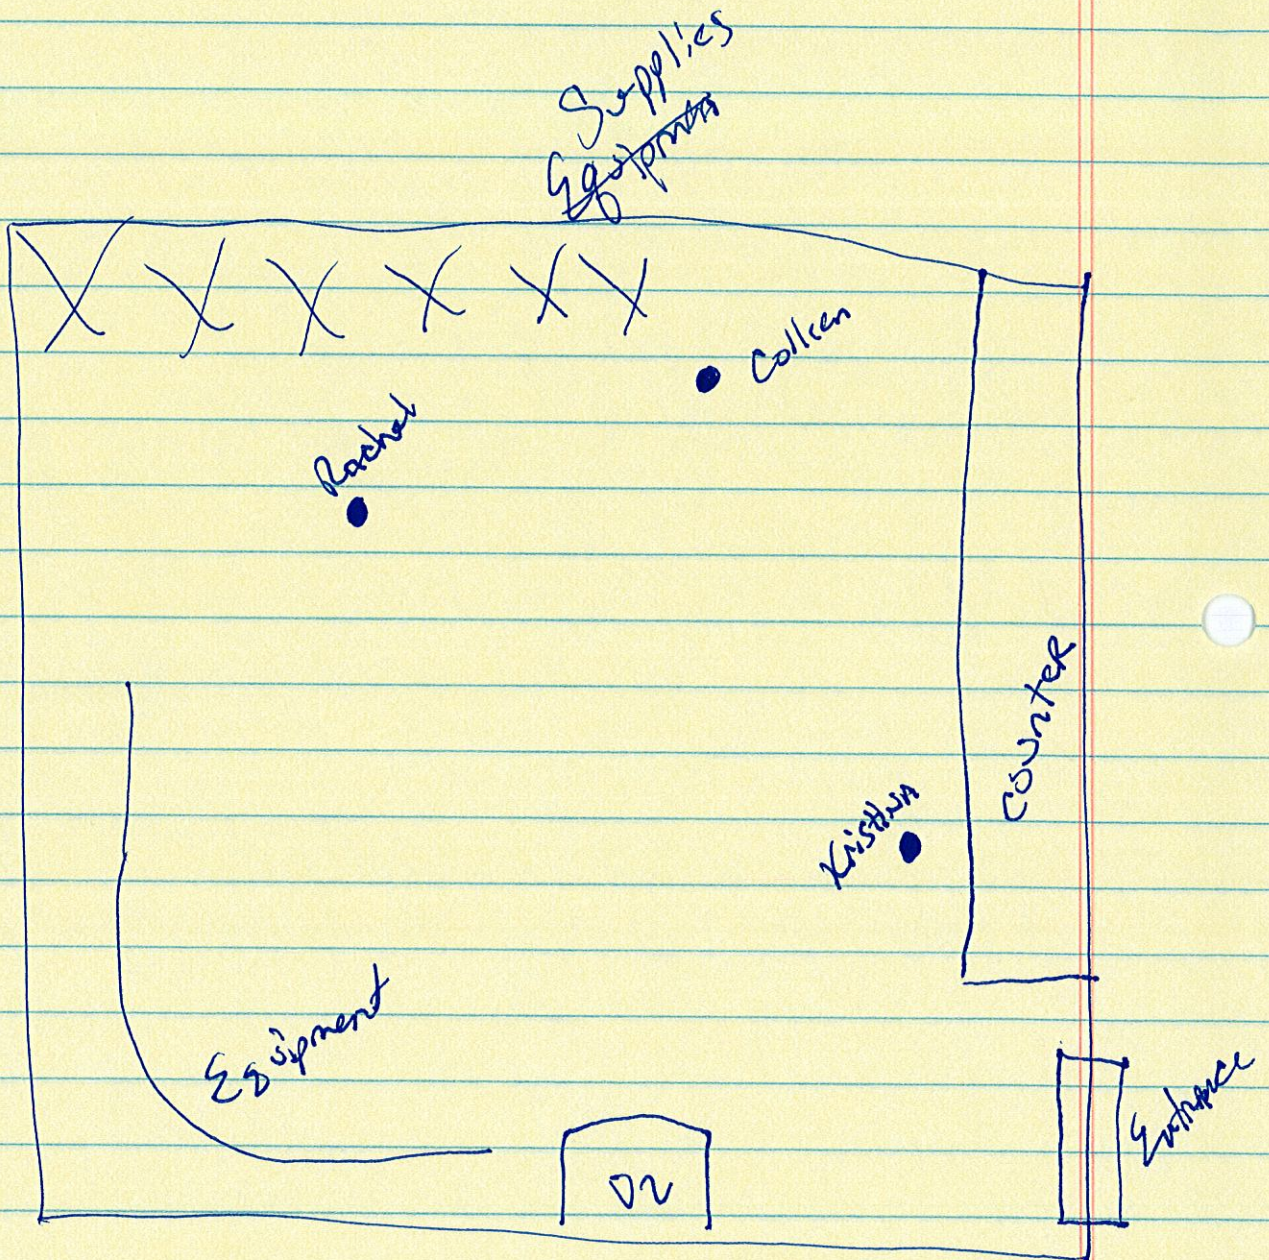 Supplies
Equipment
X X X X X X
Colleen
Rachel
COUNTER
Kristina
Equipment
Entrance